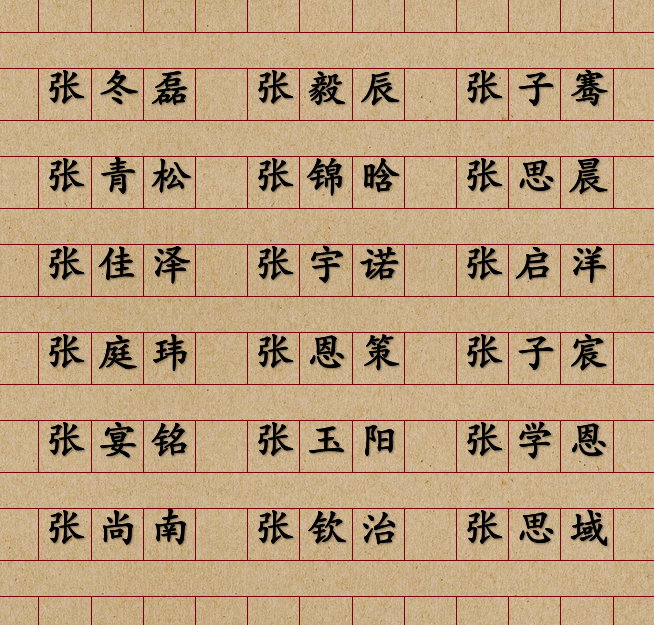 张冬磊 张毅辰 张子骞
张青松 张锦晗 张思晨
张佳泽 张宇诺 张启洋
张庭玮 张恩策 张子宸
张宴铭 张玉阳 张学恩
张尚南 张钦治 张思域